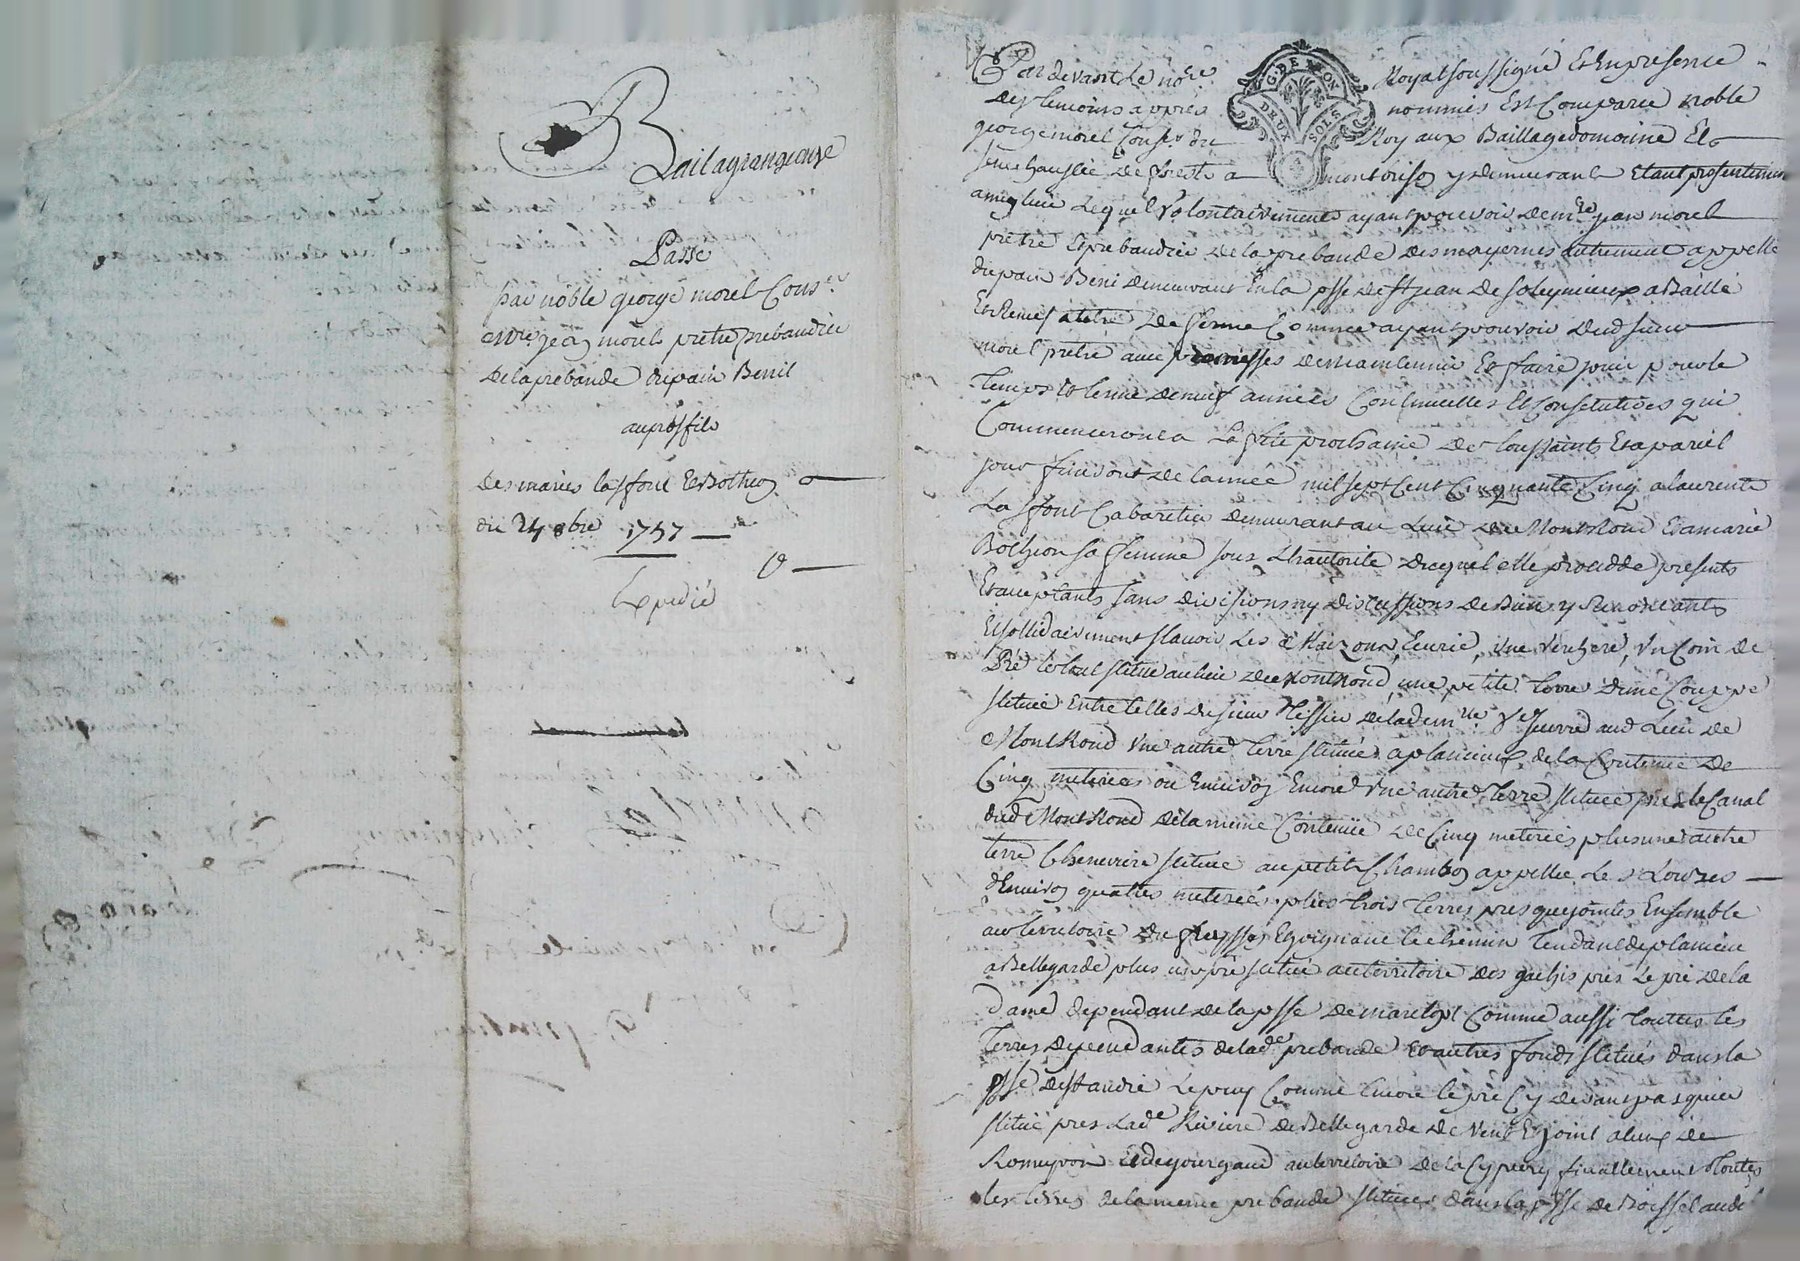 Bail a grangeage
Passé
par noble george morel Cons.er
et mre jean morel pretre prebandier
De la prebande du pain Benit
au proffit
des mariés lasfont et Bothion
du 24 8bre 1757
Expedié
G.DE LYON
DEUX SOLS
Par devant Le nore Royal soussigné Et En presence
Des temoins apprès nommés Est Comparu noble
george morel Conser du Roy aux Baillage domaine Et
senechaussée De forests a montbrison y demeurant Etant presentement
lequel volontairement ayant pouvoir de mre jean morel
pretre Et prebandier de la prebande des mayernes autrement appellé
du pain Beni demeurant En la psse de st jean De soleymieux a Baillé
Et Remis a titre De ferme Comme ayant pouvoir dud sieur
morel pretre avec promesses de maintenir Et faire jouir pour le
Temps Et terme de neuf années Continuelles Et Consecutives qui
Commenceront a La fête prochaine De toussaints Et a pareil
jour finiront de lannée mil sept Cent Cinquante Cinq a laurent
Lasfont Cabaretier demeurant au Lieu de Montrond Et a marie
Bothion sa femme sous Lhautorité duquel elle procedde presents
Et acceptants sans divisions ny discussions de Biens y Renonceants
Et sollidairement scavoir Les Maizons, Ecurie, une verchere, un Coin de
Pré le tout scitué au lieu de Montrond, une petite terre d'une Couppe
scituée Entre celles du sieur Tissier de la dem.lle aud Lieu de
Montrond Une autre terre scituée a plancieu de la Contenue De
Cinq meterées ou Environ Encore Une autre Terre scituée près le Canal
dud Montrond de la meme Contenue de Cinq meterées plus une autre
terre Cheneviere scituée au petit Chambon appellée Le
d'Environ quatres meterées, plus trois terres presque jointes Ensemble
au territoire du Et joignant le chemin Tendant de plancieu
a Bellegarde plus un pré scitué au territoire des gachis près Le pré de la
Dame dependant de la psse de marclopt Comme aussi touttes les
Terres dependantes de lade prebande Et autres fonds scitués dans la
psse de st andré Le puy Comme Encore le pré Cy devant pasquier
scitué près Lade Riviere de Bellegarde De vent Et joint a Ceux de
Romeyron Et de gourgaud au territoire De la finallement Toutes
les terres de la meme prebande scituées dans la psse de Boisset aud